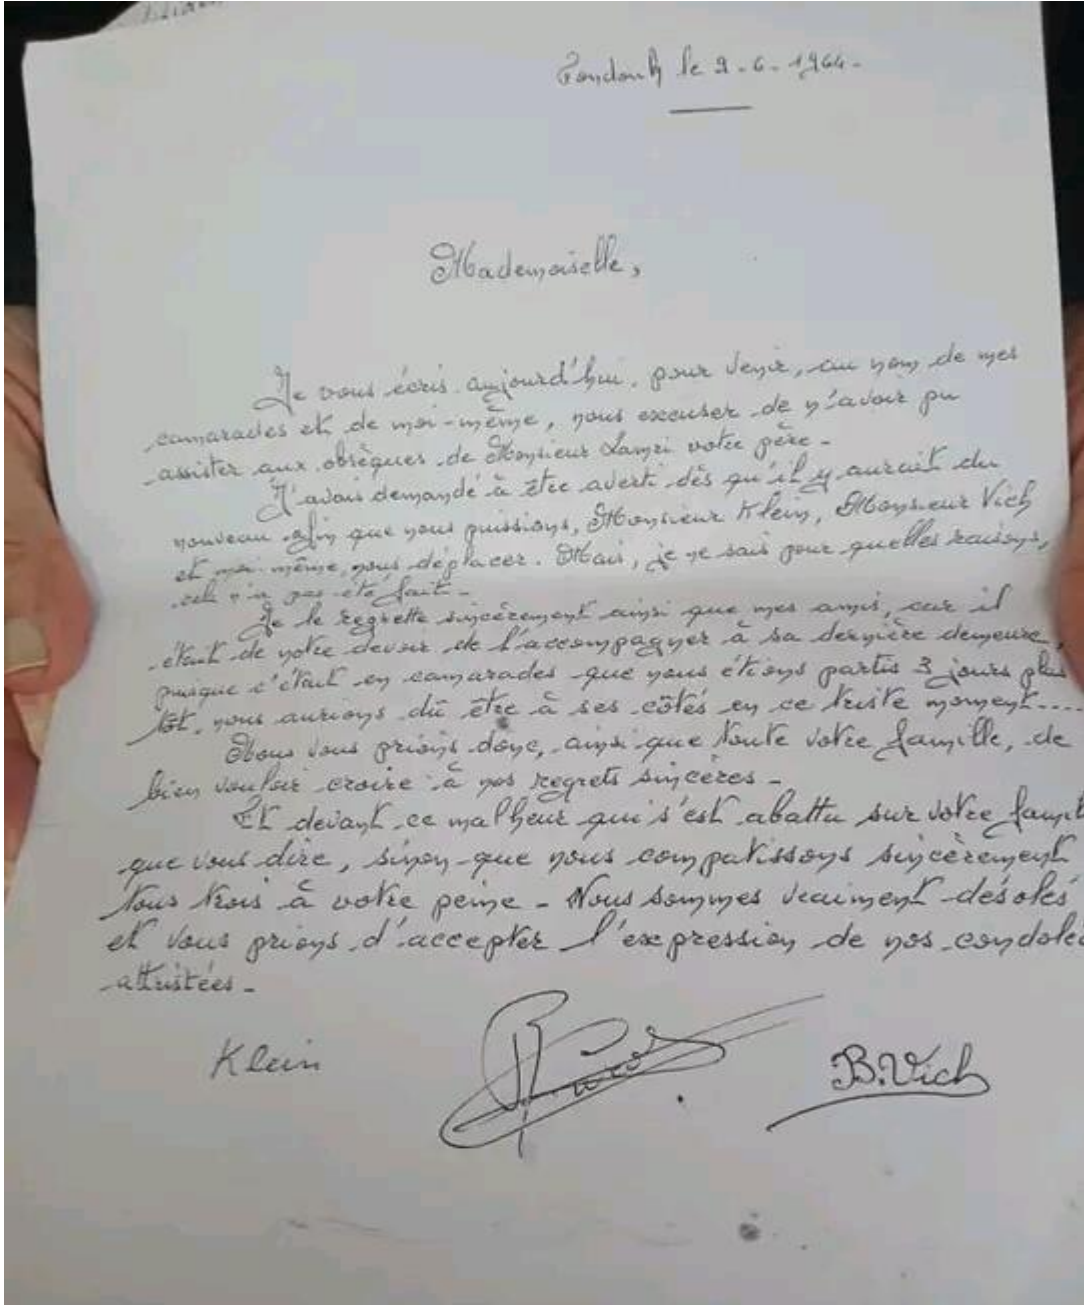 Fondouk le 2-6-1964-
Mademoiselle,
Je vous écris aujourd'hui, pour venir, au nom de mes
camarades et de moi-même, nous excuser de n'avoir pu
assister aux obsèques de Monsieur Lamri votre père-
J'avais demandé à être averti dès qu'il y aurait du
nouveau afin que nous puissions, Monsieur Klein, Monsieur Vich
et moi-même, nous déplacer. Mais, je ne sais pour quelles raisons,
cel n'a pas été fait-
Je le regrette sincèrement ainsi que mes amis, car il
était de notre devoir de l'accompagner à sa dernière demeure,
puisque c'était en camarades que nous étions partis 3 jours plus
tôt, nous aurions dû être à ses côtés en ce triste moment....
Nous vous prions donc, ainsi que toute votre famille, de
bien vouloir croire à nos regrets sincères-
Et devant ce malheur qui s'est abattu sur votre famil
que vous dire, sinon que nous compatissons sincèrement
tous trois à votre peine- Nous sommes vraiment désolés
et vous prions d'accepter l'expression de nos condoléa
attristées-
Klein
B.Vich